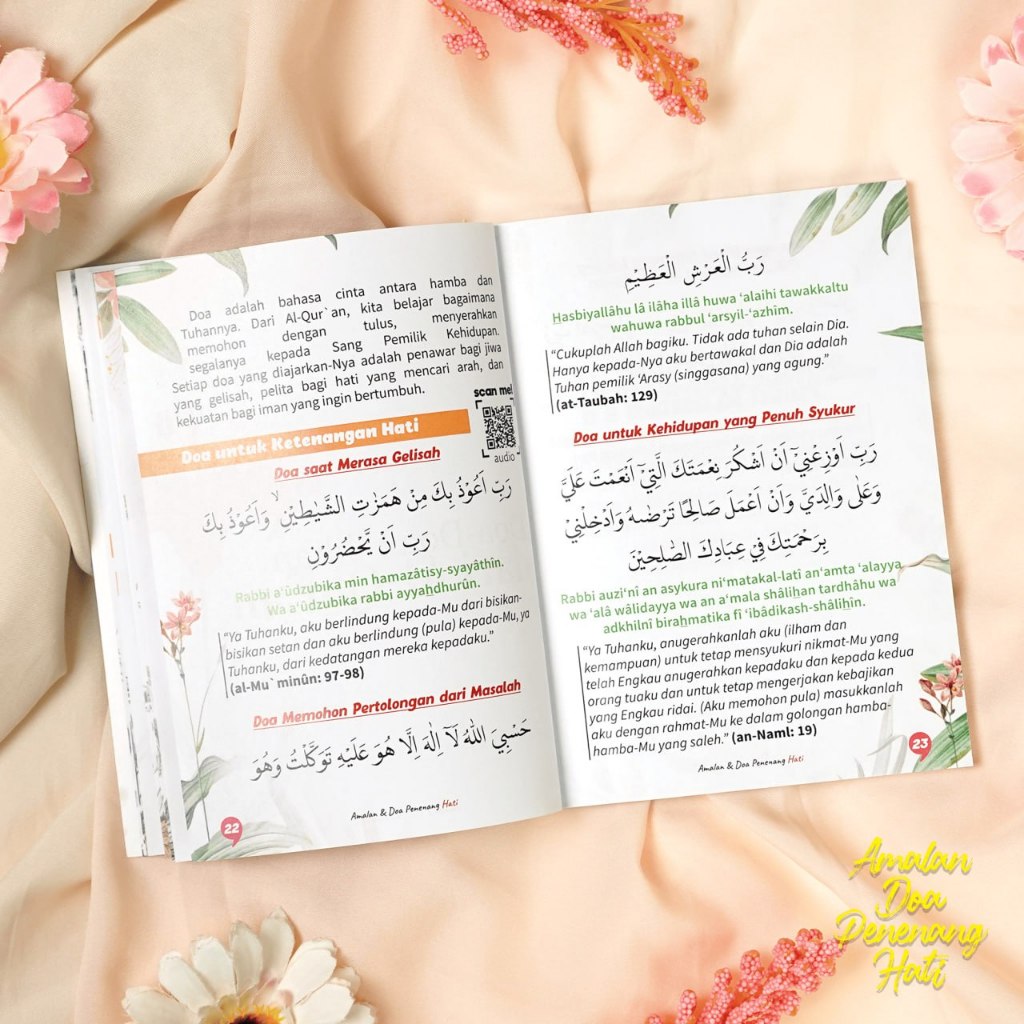 Doa adalah bahasa cinta antara hamba dan
Tuhannya. Dari Al-Qur`an, kita belajar bagaimana
memohon dengan tulus, menyerahkan
segalanya kepada Sang Pemilik Kehidupan.
Setiap doa yang diajarkan-Nya adalah penawar bagi jiwa
yang gelisah, pelita bagi hati yang mencari arah, dan
kekuatan bagi iman yang ingin bertumbuh.
scan me!
audio
Doa untuk Ketenangan Hati
Doa saat Merasa Gelisah
رَبِّ اَعُوْذُ بِكَ مِنْ هَمَزٰتِ الشَّيٰطِيْنِ ۙ وَاَعُوْذُ بِكَ
رَبِّ اَنْ يَّحْضُرُوْنِ
Rabbî a‘ûdzubika min hamazâtisy-syayâthîn.
Wa a‘ûdzubika rabbi ayyaḫdhurûn.
“Ya Tuhanku, aku berlindung kepada-Mu dari bisikan-
bisikan setan dan aku berlindung (pula) kepada-Mu, ya
Tuhanku, dari kedatangan mereka kepadaku.”
(al-Mu`minûn: 97-98)
Doa Memohon Pertolongan dari Masalah
حَسْبِيَ اللّٰهُ لَآ اِلٰهَ اِلَّا هُوَ عَلَيْهِ تَوَكَّلْتُ وَهُوَ
Amalan & Doa Penenang Hati
22
رَبُّ الْعَرْشِ الْعَظِيْمِ
Ḫasbiyallâhu lâ ilâha illâ huwa ‘alaihi tawakkaltu
wahuwa rabbul ‘arsyil-‘azhîm.
“Cukuplah Allah bagiku. Tidak ada tuhan selain Dia.
Hanya kepada-Nya aku bertawakal dan Dia adalah
Tuhan pemilik ‘Arasy (singgasana) yang agung.”
(at-Taubah: 129)
Doa untuk Kehidupan yang Penuh Syukur
رَبِّ اَوْزِعْنِيْٓ اَنْ اَشْكُرَ نِعْمَتَكَ الَّتِيْٓ اَنْعَمْتَ عَلَيَّ
وَعَلٰى وَالِدَيَّ وَاَنْ اَعْمَلَ صَالِحًا تَرْضٰىهُ وَاَدْخِلْنِيْ
بِرَحْمَتِكَ فِيْ عِبَادِكَ الصّٰلِحِيْنَ
Rabbî auzi‘nî an asykura ni‘matakal-latî an‘amta ‘alayya
wa ‘alâ wâlidayya wa an a‘mala shâliḫan tardhâhu wa
adkhilnî biraḫmatika fî ‘ibâdikash-shâliḫîn.
“Ya Tuhanku, anugerahkanlah aku (ilham dan
kemampuan) untuk tetap mensyukuri nikmat-Mu yang
telah Engkau anugerahkan kepadaku dan kepada kedua
orang tuaku dan untuk tetap mengerjakan kebajikan
yang Engkau ridai. (Aku memohon pula) masukkanlah
aku dengan rahmat-Mu ke dalam golongan hamba-
hamba-Mu yang saleh.” (an-Naml: 19)
Amalan & Doa Penenang Hati
23
Amalan
Doa
Penenang
Hati